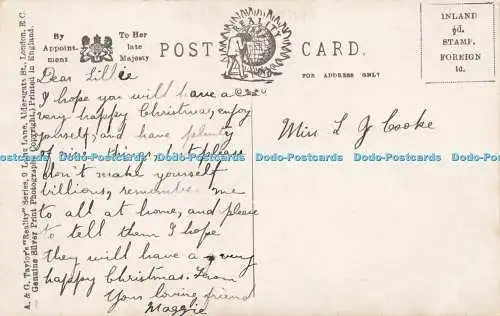 By
Appoint-
ment
To Her
late
Majesty
POST CARD.
REALITY
FOR ADDRESS ONLY
INLAND
½d.
STAMP.
FOREIGN
1d.
A. & G. Taylor's "Reality" Series, 9 Lane, Aldersgate St., London, E.C.
Genuine Silver Print Photograph Copyright.) Printed in England.
Dear Lillie
I hope you will have a
very happy Christmas, enjoy
yourself, and have plenty
of nice things, but please
don't make yourself
billious, remember me
to all at home, and please
to tell them I hope
they will have a very
happy Christmas. From
Your loving friend
Maggie
Miss L J Cooke
Dodo-Postcards Dodo-Postcards Dodo-Postcards Dodo-Postcards Dodo-Postcards